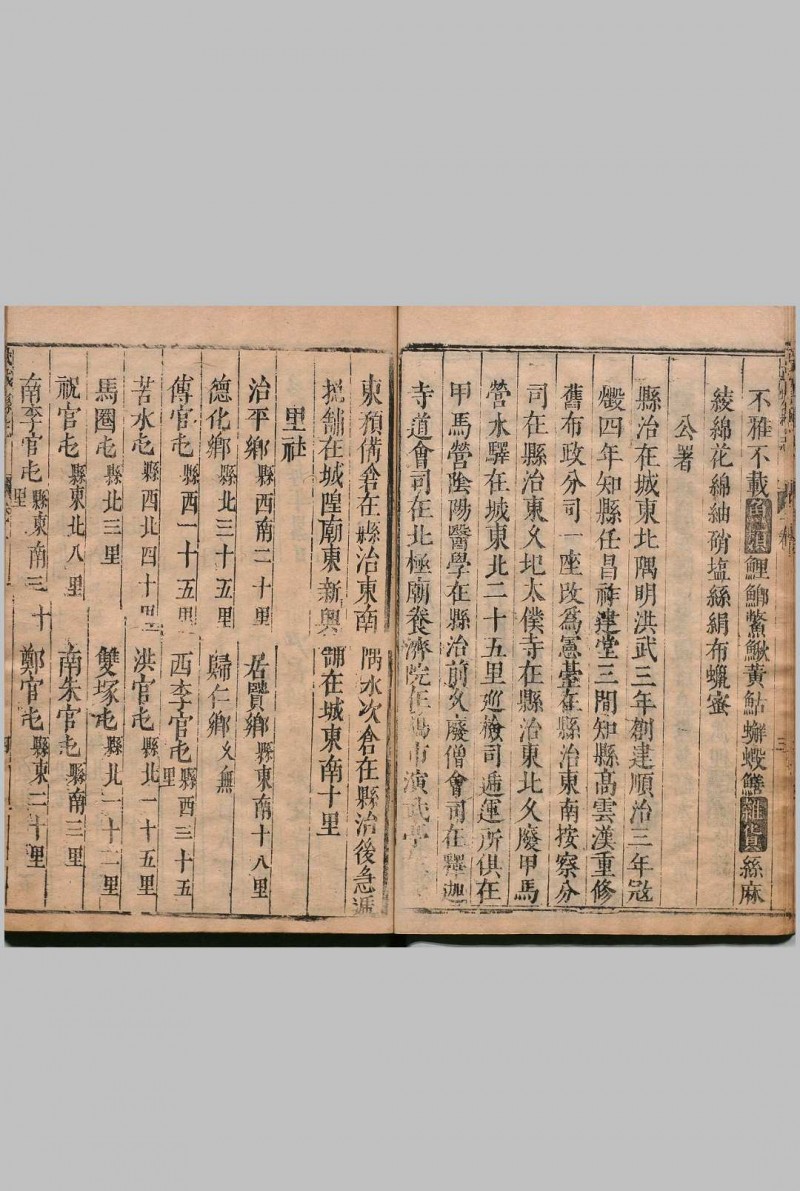 不雅不載魚類鯉鯽鱉鰍黃鮎蠏蝦鱔雜貨絲麻
綾綿花綿紬硝塩絲絹布蠟蜜
公署
縣治在城東北隅明洪武三年創建順治三年寇
燬四年知縣任昌祚建堂三間知縣高雲漢重修
舊布政分司一座改為憲臺在縣治東南按察分
司在縣治東久圮太僕寺在縣治東北久廢甲馬
營水驛在城東北二十五里巡檢司遞運所俱在
甲馬營陰陽醫學在縣治前久廢僧會司在釋迦
寺道會司在北極廟養濟院在 市演武亭
東預備倉在縣治東南隅水次倉在縣治後急遞
捴舖在城隍廟東新興舖在城東南十里
里社
治平鄉縣西南二十里 居賢鄉縣東南十八里
德化鄉縣北三十五里 歸仁鄉久無
傅官屯縣西一十五里 西李官屯縣西三十五里
苦水屯縣西北四十里 洪官屯縣北一十五里
馬圈屯縣北三里 雙塚屯縣北一十二里
祝官屯縣東北八里 南朱官屯縣南三里
南李官屯縣東南三十里 鄭官屯縣東二十里